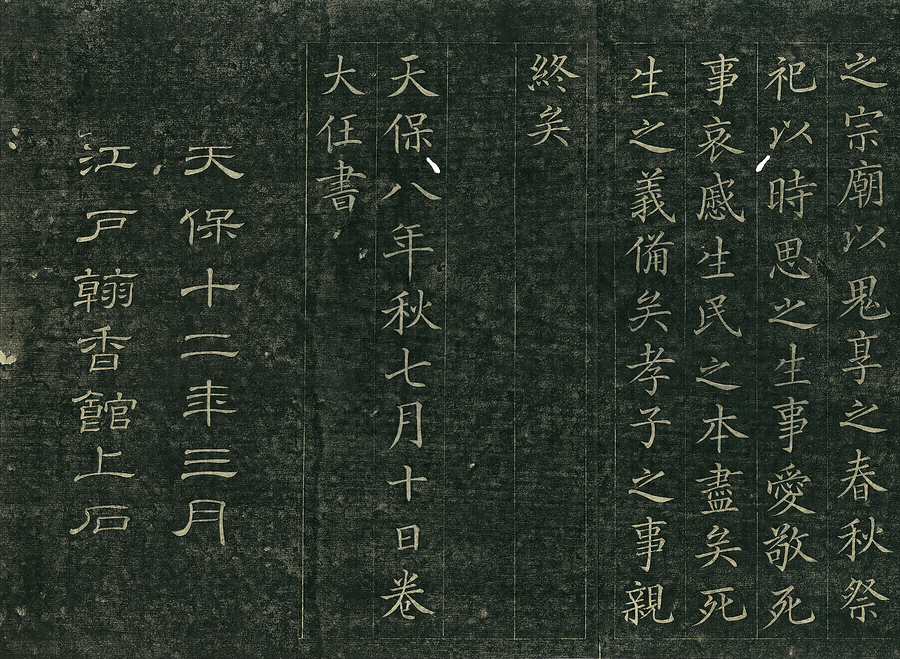 之宗廟以鬼享之春秋祭
祀以時思之生事愛敬死
事哀慼生民之本盡矣死
生之義備矣孝子之事親
終矣
天保八年秋七月十日卷
大任書
天保十二年三月
江戸翰香館上石